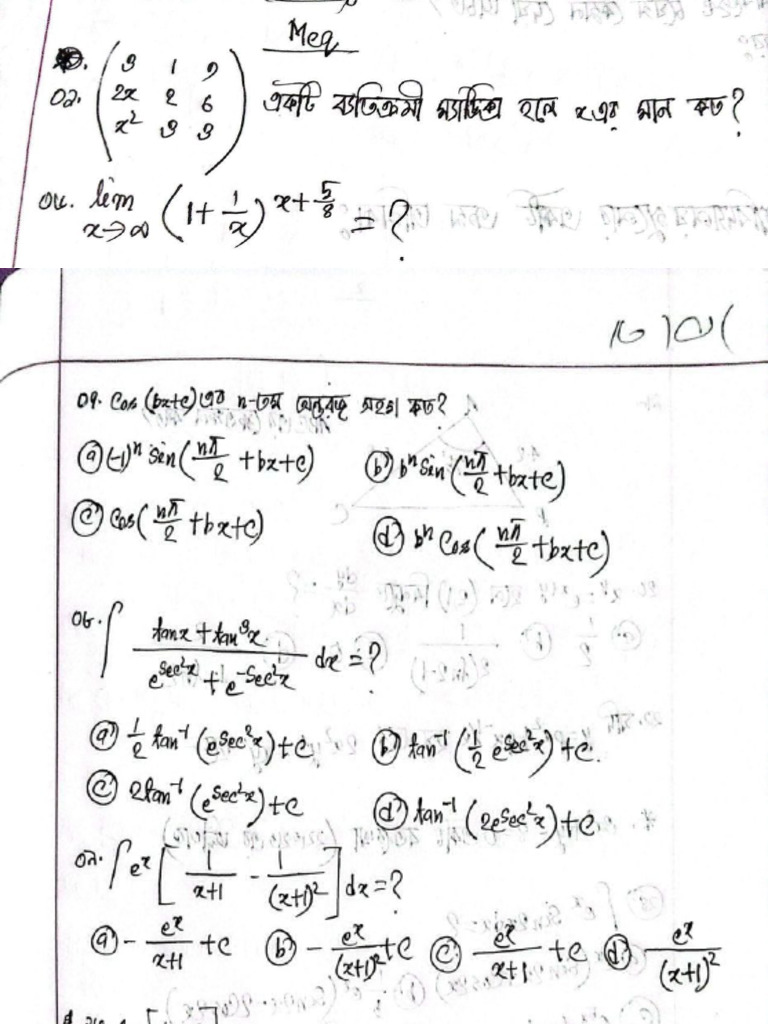 Mcq
০১. (৩ 1 9
2x 2 6
x² ৩ ৩) একটি ব্যতিক্রমী ম্যাট্রিক্স হলে x এর মান কত?
০৮. lim x→∞ (1 + 1/x)^(x + 5/8) = ?
০৭. Cos (bx+c) এর n-তম অন্তরজ সহগ কত?
ⓐ (-1)ⁿ sin(nπ/2 + bx + c) ⓑ bⁿ sin(nπ/2 + bx + c)
ⓒ Cos(nπ/2 + bx + c) ⓓ bⁿ Cos(nπ/2 + bx + c)
০৮. ∫ (tanx + tan³x)/(e^(sec²x) + e^(-sec²x)) dx = ?
ⓐ 1/2 tan⁻¹(e^(sec²x)) + c ⓑ tan⁻¹(1/2 e^(sec²x)) + c.
ⓒ 2tan⁻¹(e^(sec²x)) + c ⓓ tan⁻¹(2e^(sec²x)) + c
০৯. ∫ eˣ [1/(x+1) - 1/(x+1)²] dx = ?
ⓐ - eˣ/(x+1) + c ⓑ - eˣ/(x+1)² + c ⓒ eˣ/(x+1) + c ⓓ eˣ/(x+1)²